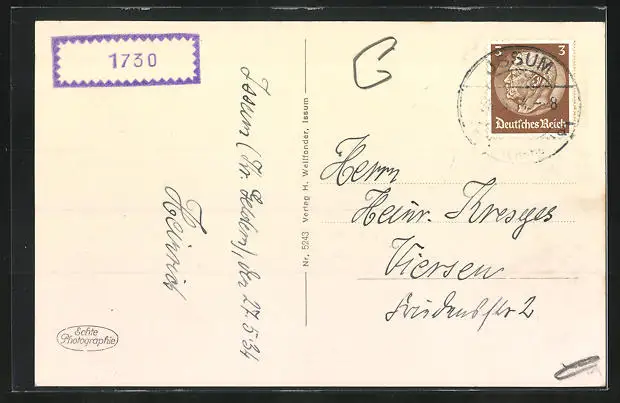 1730
Issum (Kr. Geldern), den 27.5.34
Heinrich
Echte
Photographie
Nr. 5243 Verlag H. Wellfonder, Issum
3 3
Deutsches Reich
ISSUM
8
Herrn
Heinr. Kresges
Viersen
2